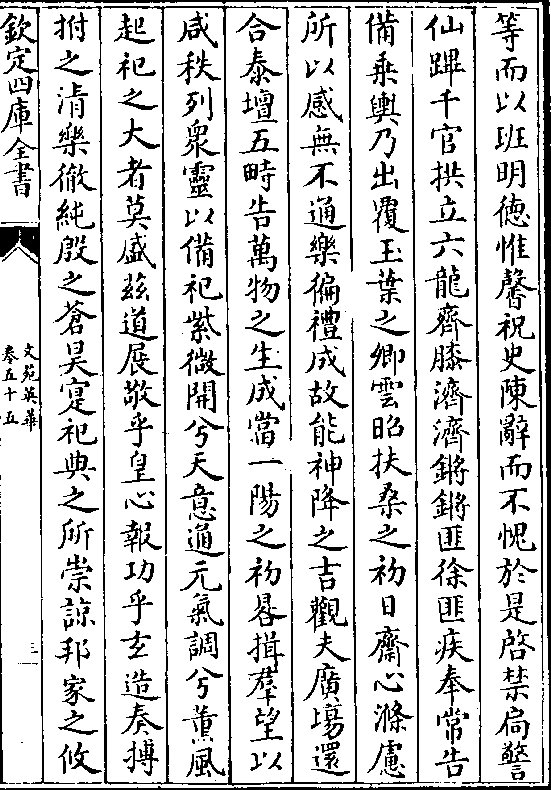 等而以班明德惟馨祝史陳辭而不愧於是啓禁扃警
仙蹕千官拱立六龍齊膝濟濟鏘鏘匪徐匪疾奉常告
備乗輿乃出覆玉葉之卿雲昭扶桑之初日齋心滌慮
所以感無不通樂徧禮成故能神降之吉觀夫廣塲還
合泰壇五畤告萬物之生成當一陽之初晷揖羣望以
咸秩列衆靈以備祀紫微開兮天意通元氣調兮薫風
起祀之大者莫盛兹道展敬乎皇心報功乎玄造奏搏
拊之清樂徹純殷之蒼昊寔祀典之所崇諒邦家之攸
欽定四庫全書
文苑英華
卷五十五
三